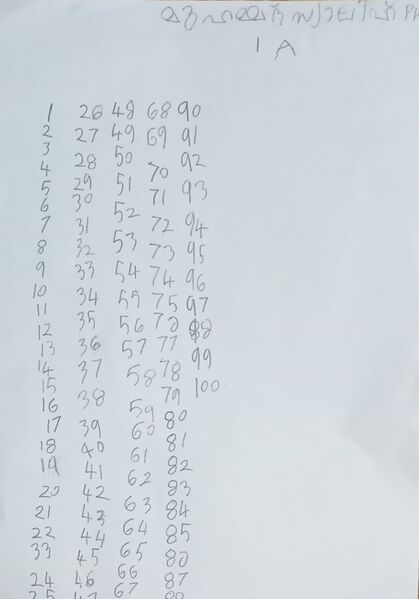 മുഹമ്മദ്
1 A
1
2
3
4
5
6
7
8
9
10
11
12
13
14
15
16
17
18
19
20
21
22
33
24
25
26
27
28
29
30
31
32
33
34
35
36
37
38
39
40
41
42
43
44
45
46
47
48
49
50
51
52
53
54
55
56
57
58
59
60
61
62
63
64
65
66
67
68
69
70
71
72
73
74
75
77
78
79
80
81
82
83
84
85
80
87
88
90
91
92
93
94
95
96
97
99
100